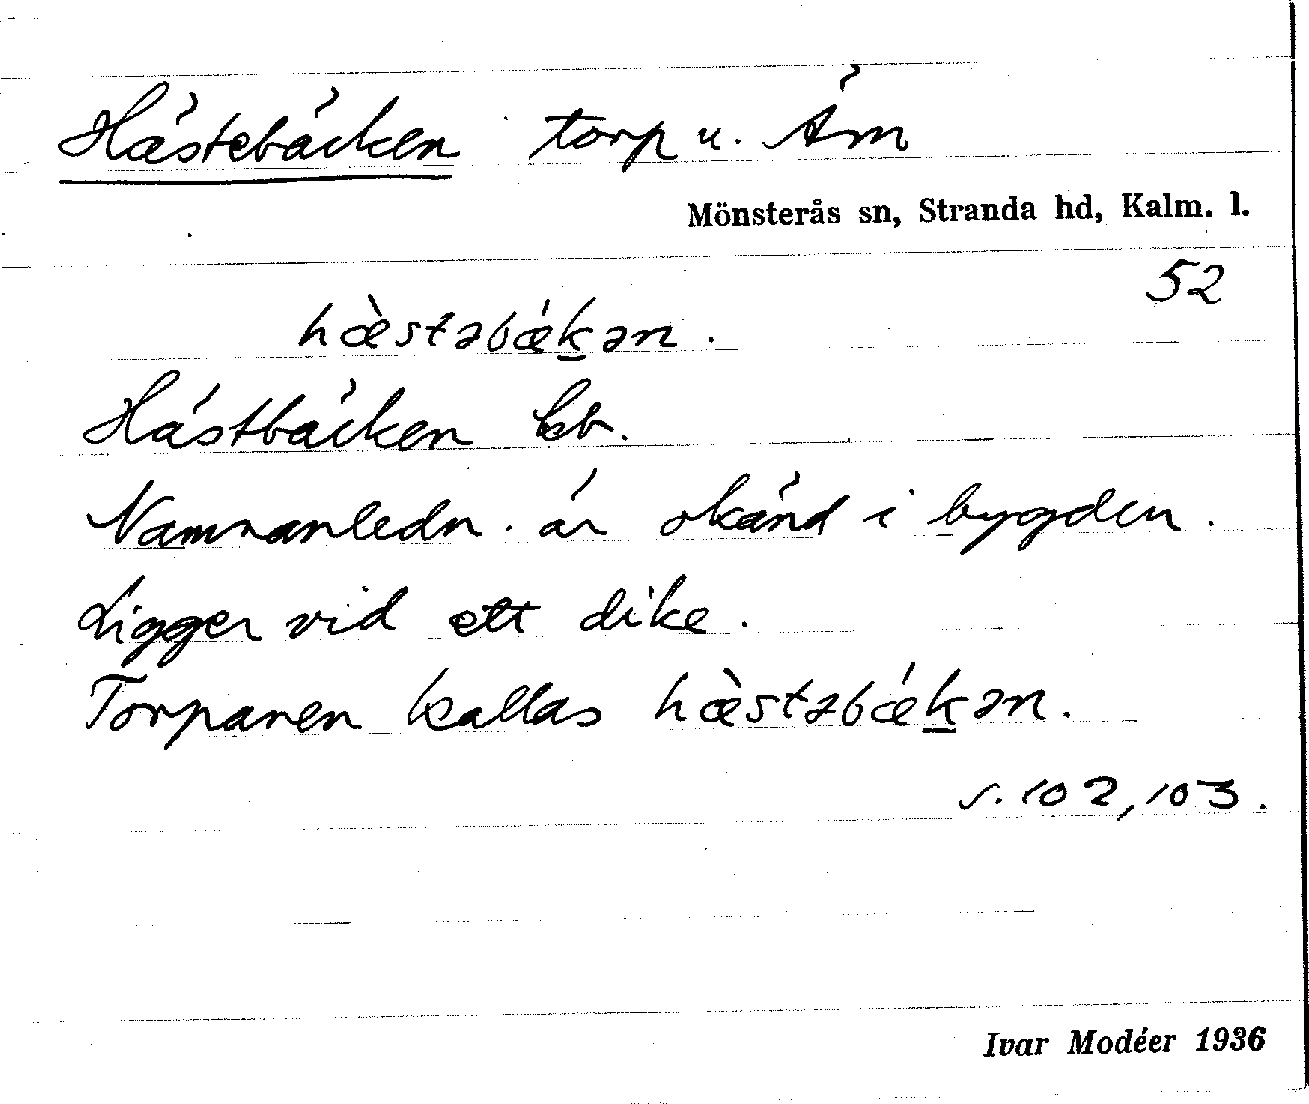 Hästebäcken torp u. Äm
Mönsterås sn, Stranda hd, Kalm. l.
52
hæ̀stəbǽk̲ən.
Hästbäcken kb.
Namnanledn. är okänd i bygden.
Ligger vid ett dike.
Torparen kallas hæ̀stəbǽk̲ən.
s. 102, 103.
Ivar Modéer 1936